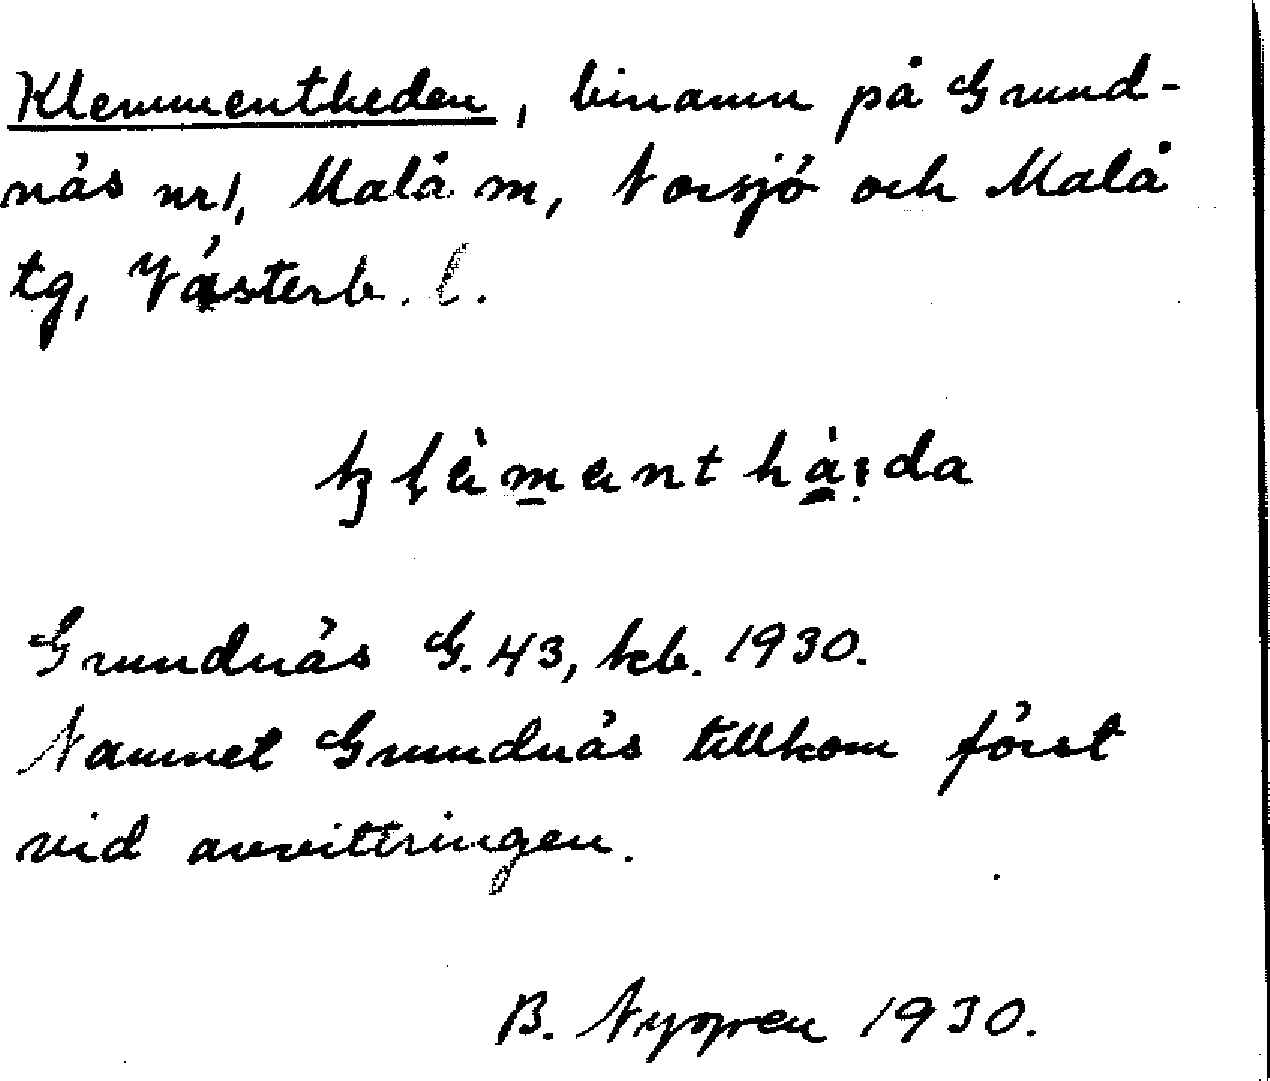 Klemmentheden, binamn på Grund-
näs nr 1, Malå m, Norsjö och Malå
tg, Västerb. l.
Grundnäs G. 43, keb. 1930.
Namnet Grundnäs tillkom först
vid avvittringen.
B. Nygren 1930.